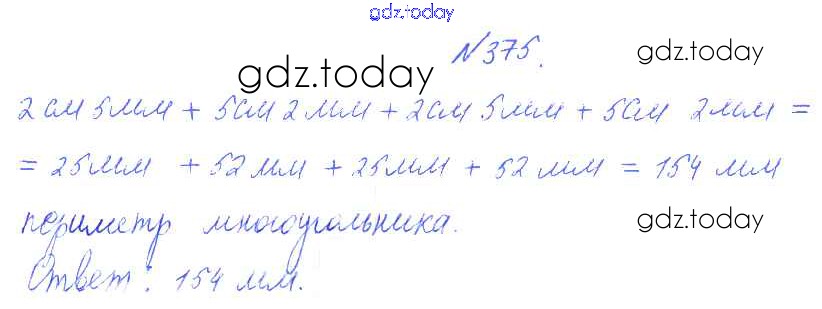 gdz.today
№375. gdz.today
gdz.today
2 см 5 мм + 5 см 2 мм + 2 см 5 мм + 5 см 2 мм =
= 25 мм + 52 мм + 25 мм + 52 мм = 154 мм
периметр многоугольника. gdz.today
Ответ: 154 мм.